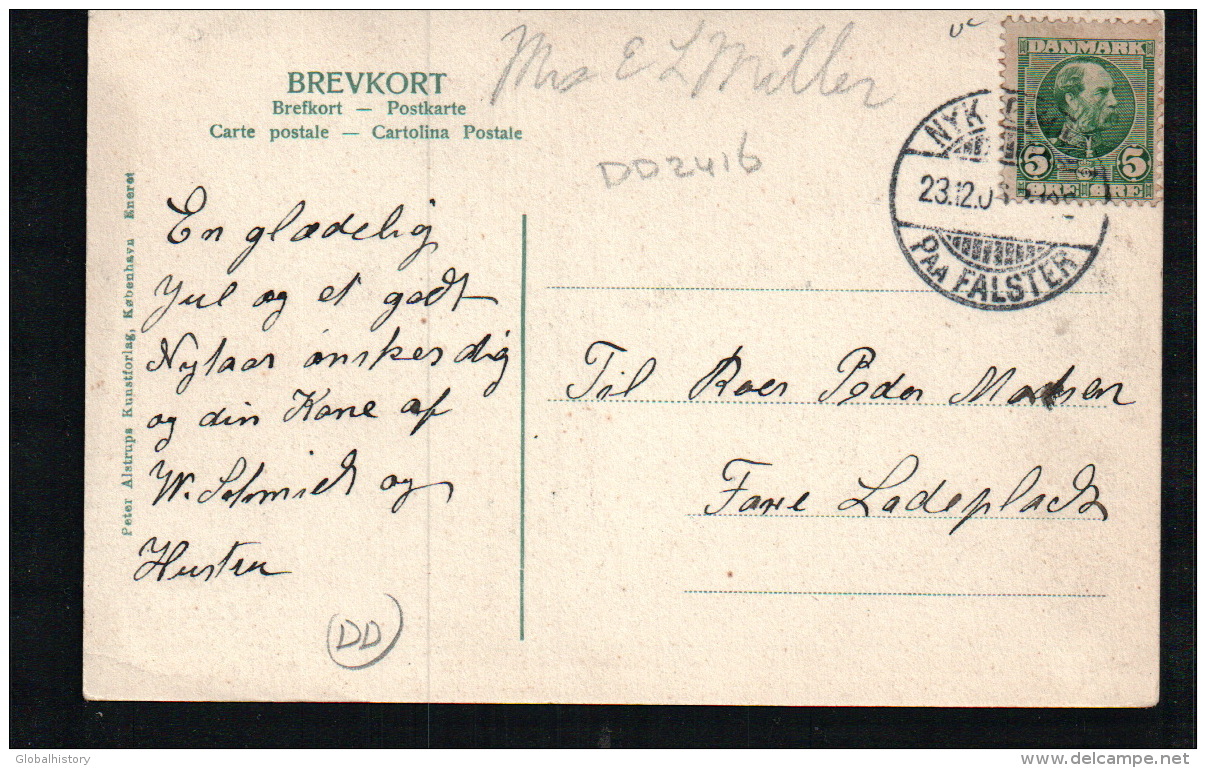 BREVKORT
Brefkort — Postkarte
Carte postale — Cartolina Postale
Mrs E L Miller
DD2416
DANMARK
5 5
ØRE ØRE
NYK
23.12.0
PAA FALSTER
Peter Alstrups Kunstforlag, København Eneret
En glædelig
Jul og et godt
Nytaar ønskes dig
og din Kone af
W. Schmidt og
Hustru
Til Roer Peder Madsen
Faxe Ladeplads
DD
Globalhistory
www.delcampe.net